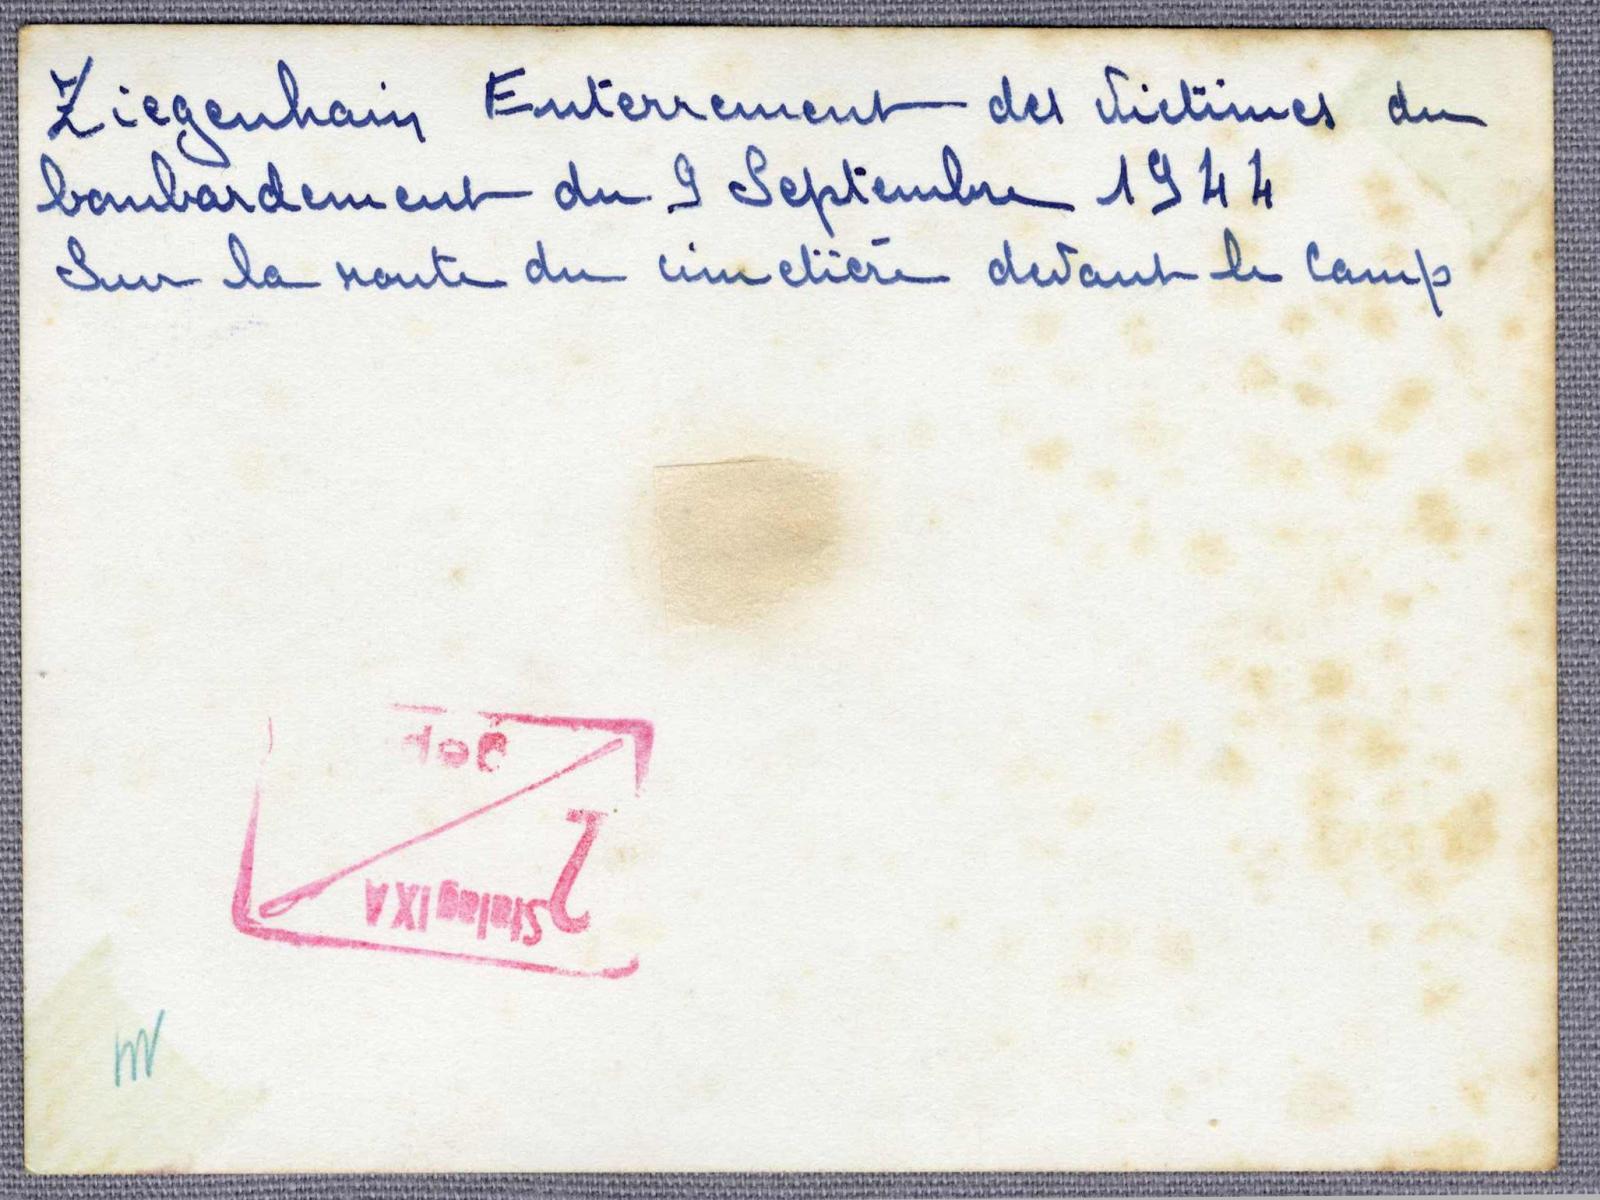 Ziegenhain Enterrement des victimes du
bombardement du 9 Septembre 1944
Sur la route du cimetière devant le Camp
Gep
2
Stalag IX A